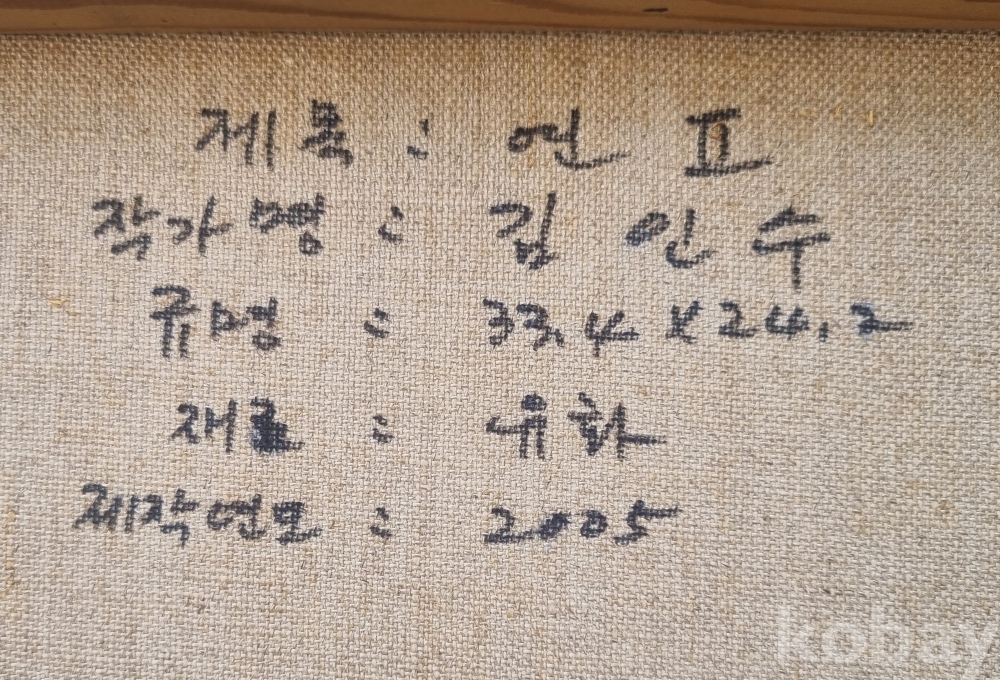 제목 : 연 Ⅱ
작가명 : 김인수
규명 : 33.4 x 24.2
재료 : 유화
제작연도 : 2005
kobay